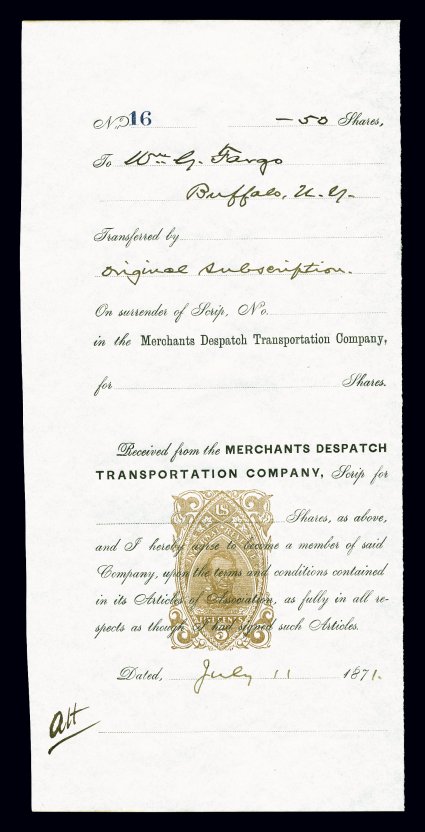 No 16 — 50 Shares,
To Wm G. Fargo
Buffalo, N.Y.
Transferred by
original subscription.
On surrender of Scrip, No.
in the Merchants Despatch Transportation Company,
for Shares.
Received from the MERCHANTS DESPATCH
TRANSPORTATION COMPANY, Scrip for
Shares, as above,
and I hereby agree to become a member of said
Company, upon the terms and conditions contained
in its Articles of Association, as fully in all re-
spects as though I had signed such Articles.
Dated, July 11 1871.